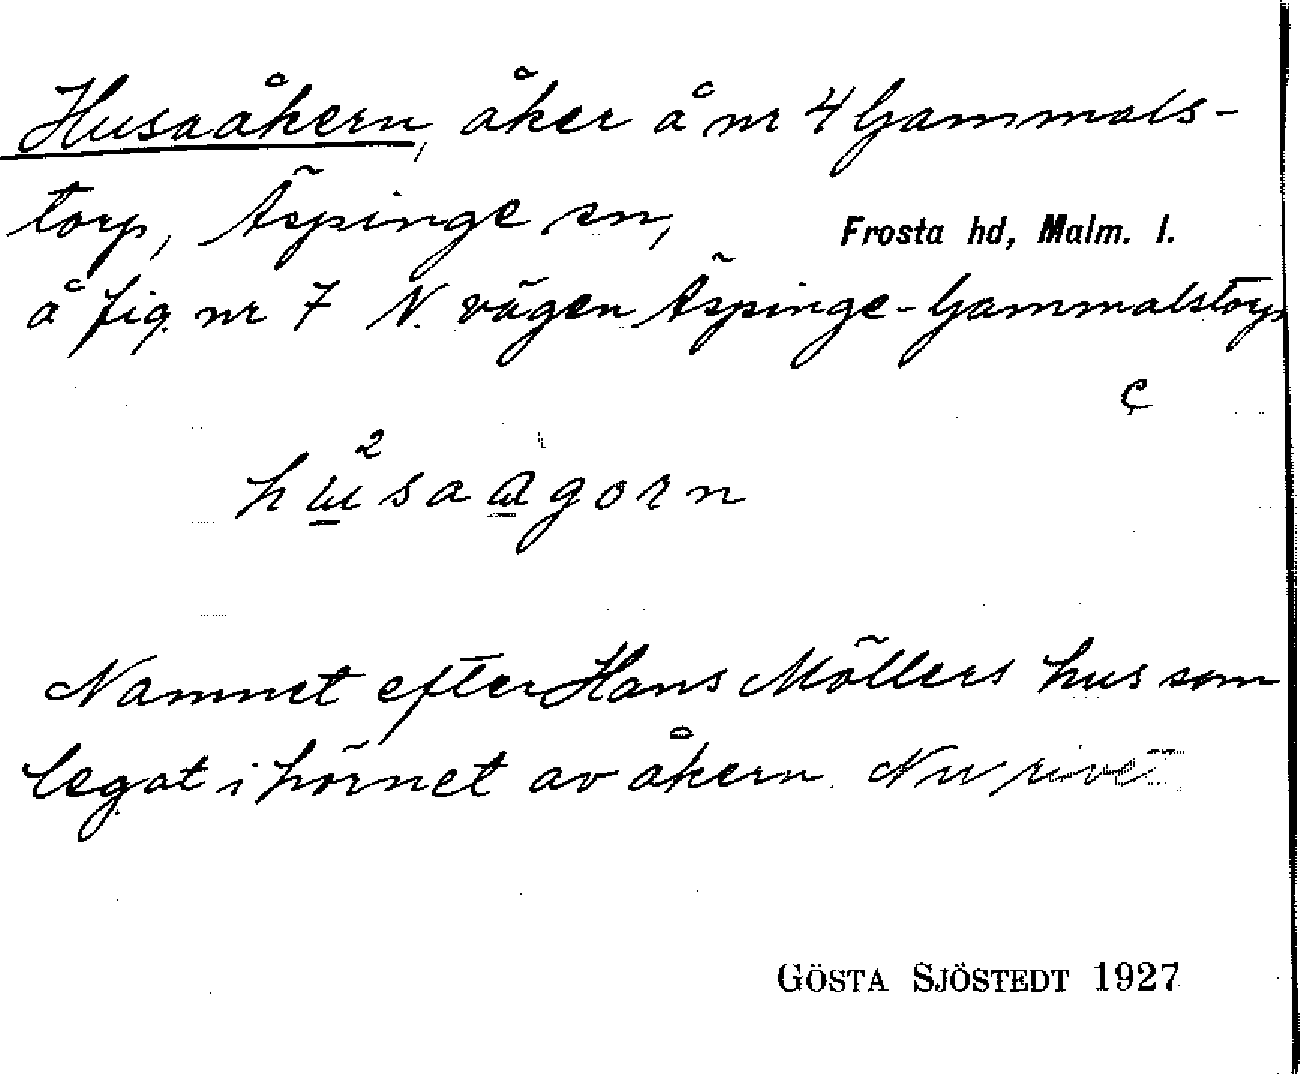 Husaåkern, åker å nr 4 Gammals-
torp, Äspinge sn, Frosta hd, Malm. l.
å fig. nr 7 N. vägen Äspinge-Gammalstorp
Namnet efter Hans Möllers hus som
legat i hörnet av åkern. Nu rivet
GÖSTA SJÖSTEDT 1927